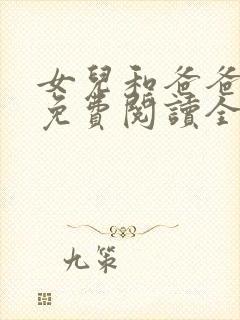 女兒和爸爸
免費閱讀全
九策